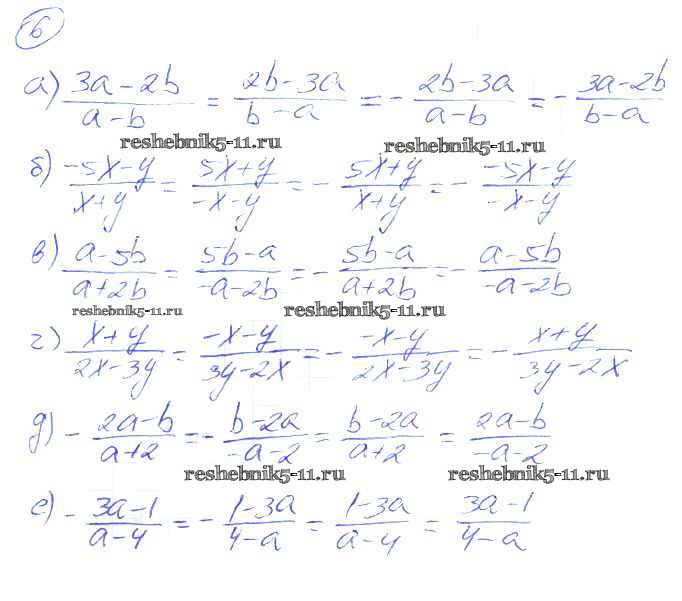 6
а) (3a-2b)/(a-b) = (2b-3a)/(b-a) = -(2b-3a)/(a-b) = -(3a-2b)/(b-a)
reshebnik5-11.ru reshebnik5-11.ru
б) (-5x-y)/(x+y) = (5x+y)/(-x-y) = -(5x+y)/(x+y) = -(-5x-y)/(-x-y)
в) (a-5b)/(a+2b) = (5b-a)/(-a-2b) = -(5b-a)/(a+2b) = -(a-5b)/(-a-2b)
reshebnik5-11.ru reshebnik5-11.ru
г) (x+y)/(2x-3y) = (-x-y)/(3y-2x) = -(-x-y)/(2x-3y) = -(x+y)/(3y-2x)
д) -(2a-b)/(a+2) = -(b-2a)/(-a-2) = (b-2a)/(a+2) = (2a-b)/(-a-2)
reshebnik5-11.ru reshebnik5-11.ru
е) -(3a-1)/(a-4) = -(1-3a)/(4-a) = (1-3a)/(a-4) = (3a-1)/(4-a)